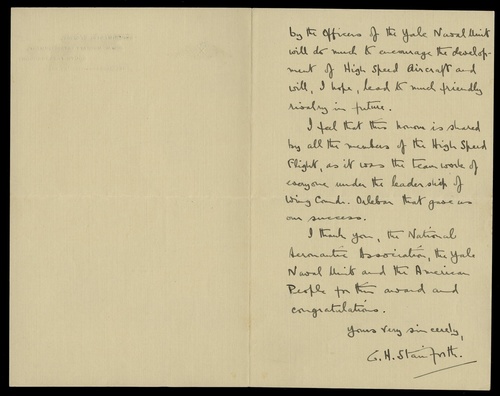 by the Officers of the Yale Naval Unit
will do much to encourage the develop-
ment of High Speed Aircraft and
will, I hope, lead to much friendly
rivalry in future.
I feel that this honour is shared
by all the members of the High Speed
Flight, as it was the team work of
everyone under the leadership of
Wing Comdr. Orlebar that gave us
our success.
I thank you, the National
Aeronautic Association, the Yale
Naval Unit and the American
People for this award and
congratulations.
Yours very sincerely,
G. H. Stainforth.